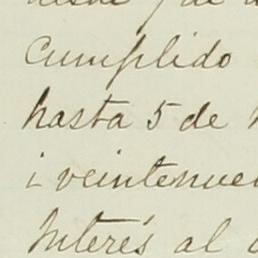 cumplido
hasta 5 de
i veintenue
Interés al